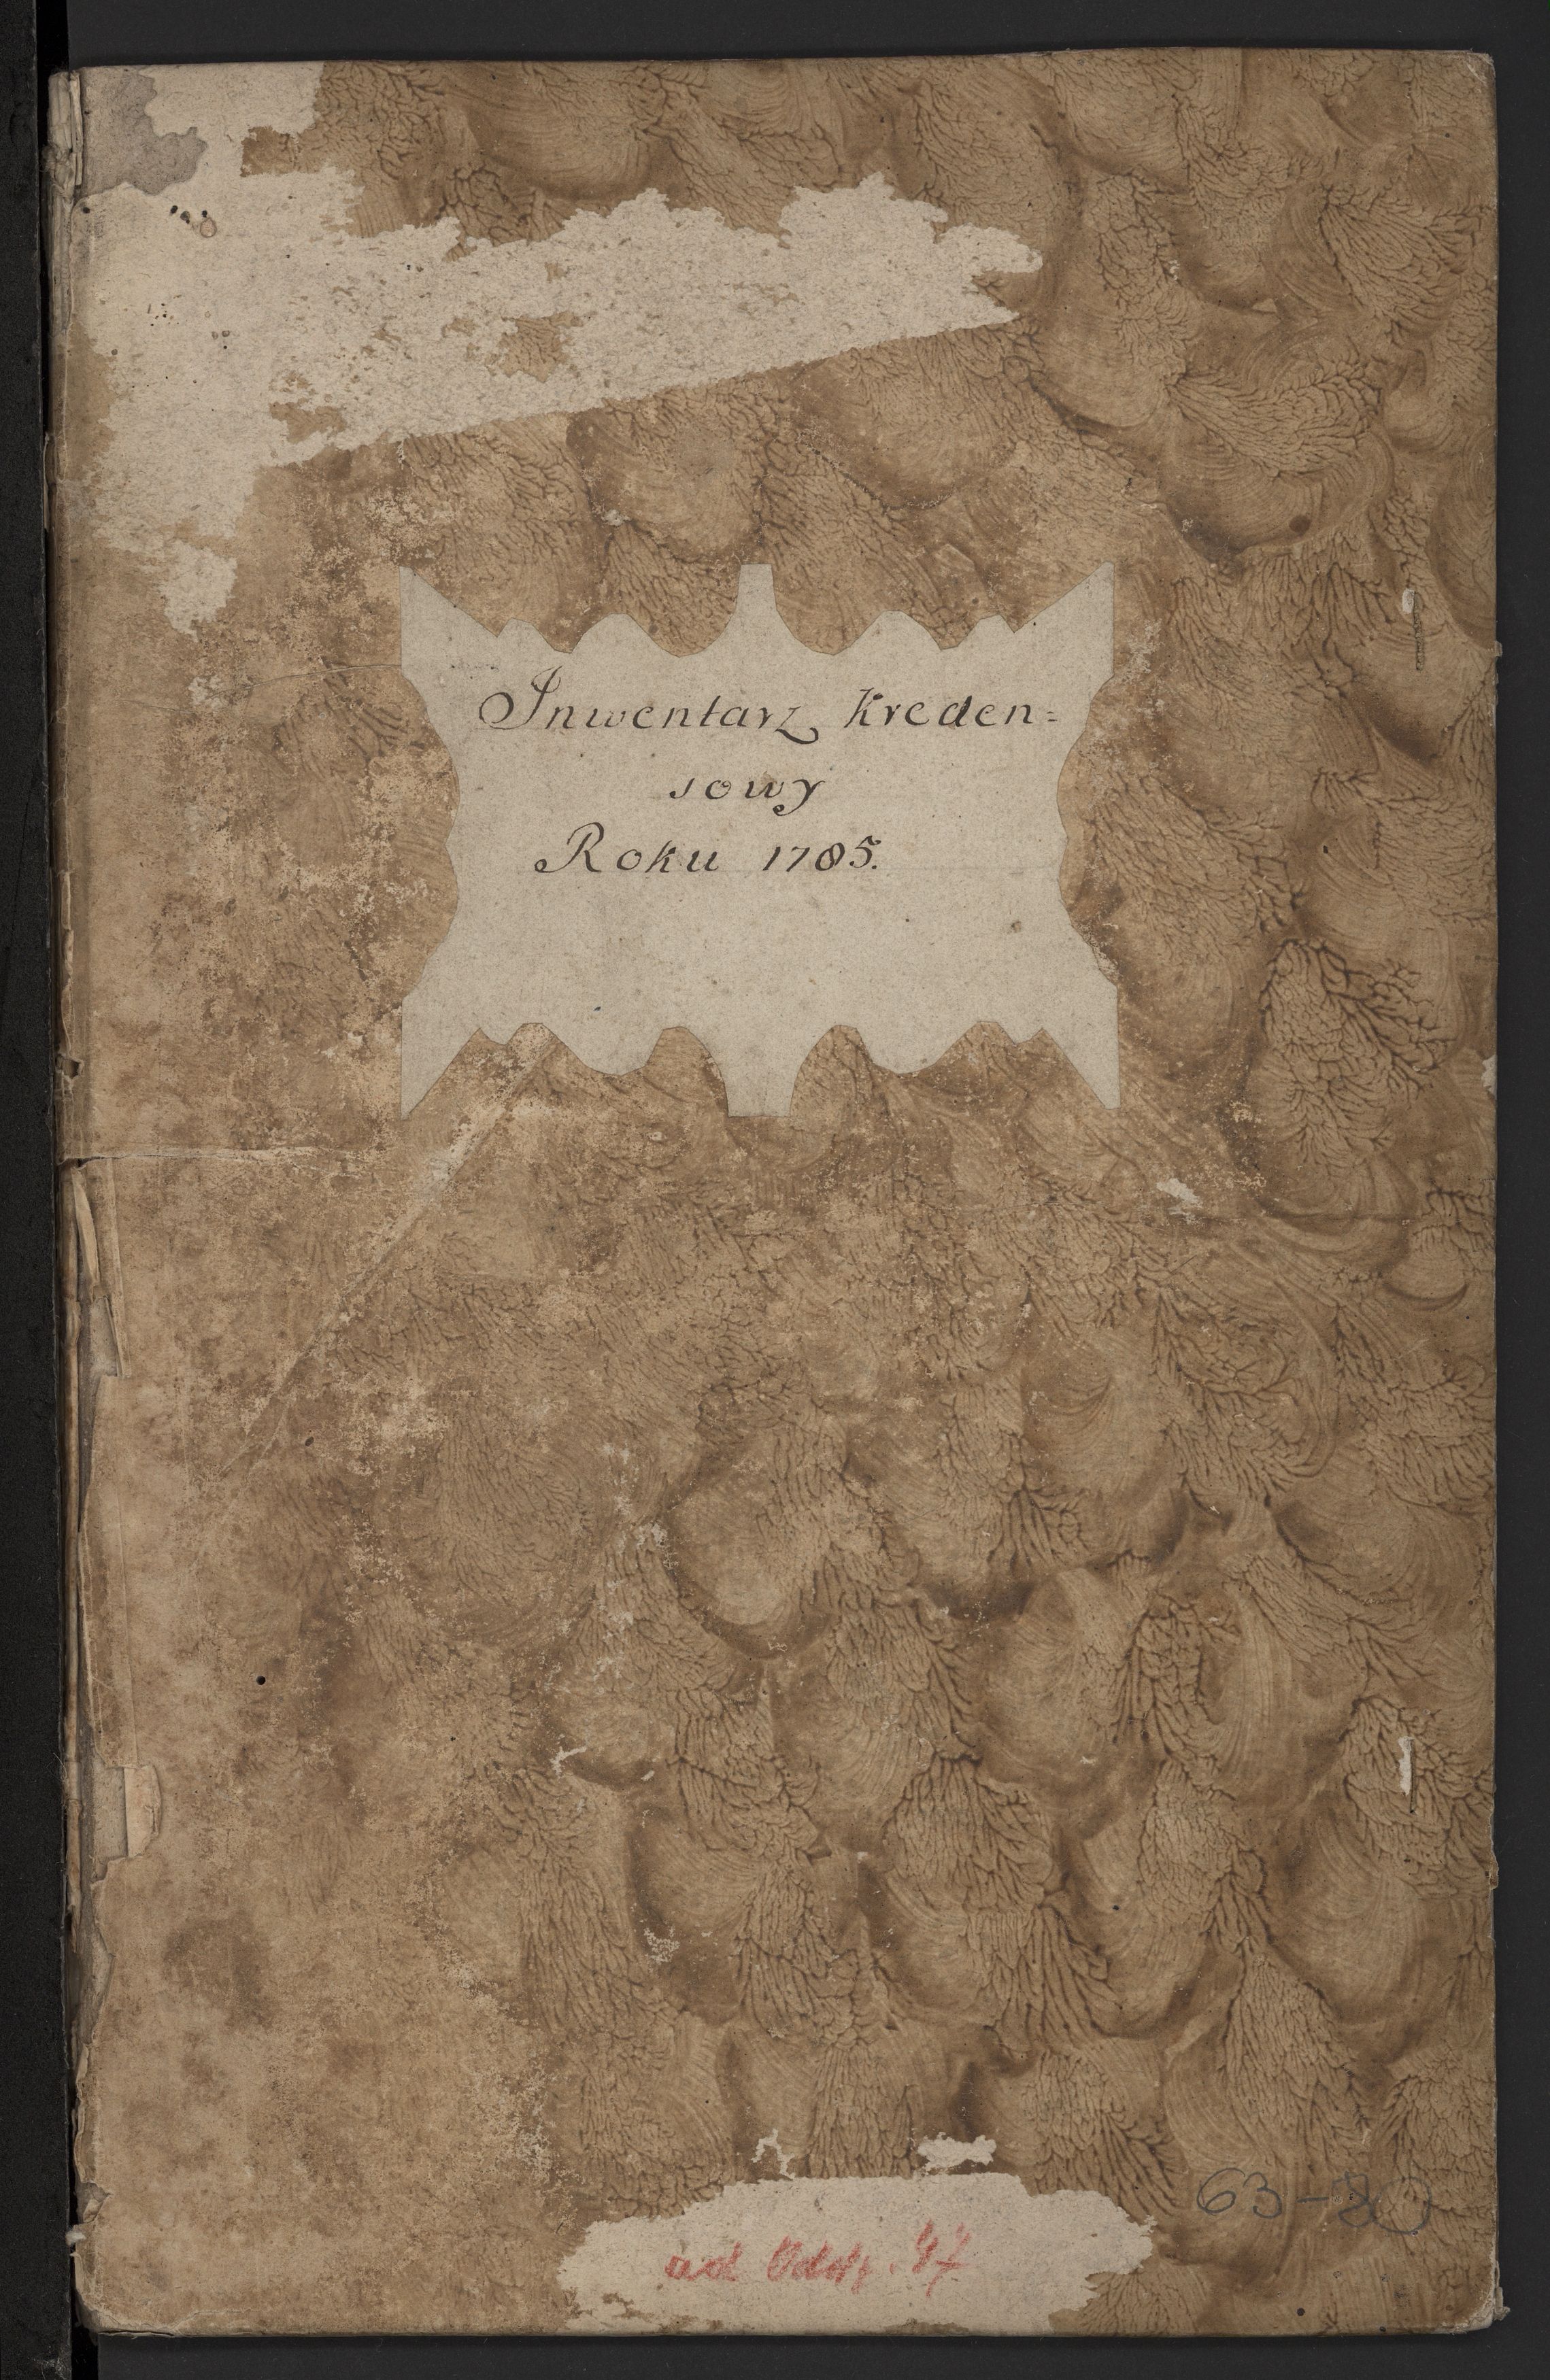 Inwentarz Kreden=
sowy
Roku 1785.
63-30
ad 47